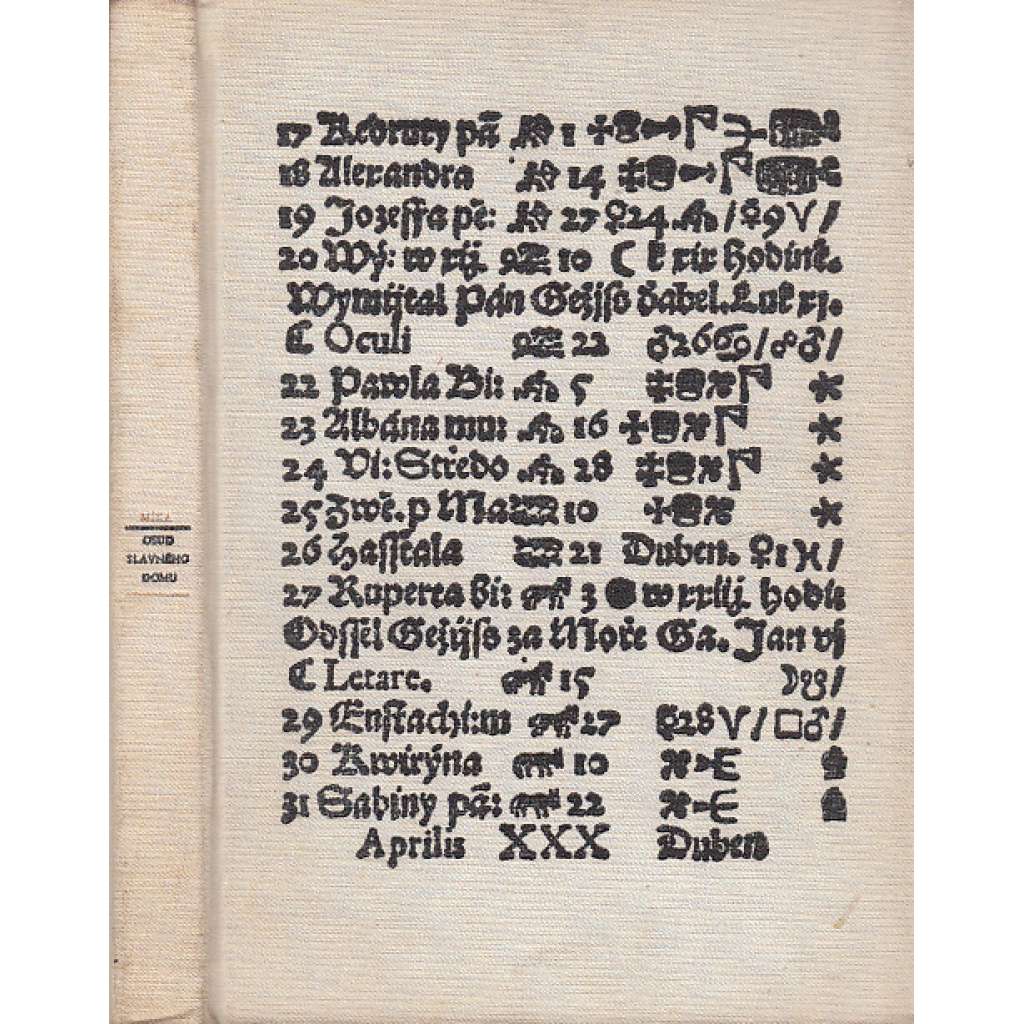 MÍKA
OSUD
SLAVNÉHO
DOMU
17 Kedruty pā 1
18 Alexandra 14
19 Jozeffa pě: 27 ♀24 / ☿9♈/
20 Wý: w rij 10 ☾ k xix hodině.
Wymijtal Pán Gežijſs ďábel. Luk xj.
Oculi 22 ♂26♋/☍♂/
22 Pawla Bi: 5
23 Albána mu: 16
24 Vi: Středo 28
25 Zwě. p Ma 10
26 Haſſtala 21 Duben. ♀1♓/
27 Ruperta bi: 3 ● w xxiij hodi:
Odſſěl Gežijſs za Moře Ga. Jan vi
Letare. 15
29 Enſtachi:m 27 28♈/□♂/
30 Kwirýna 10
31 Sabiny pā: 22
Aprilis XXX Duben